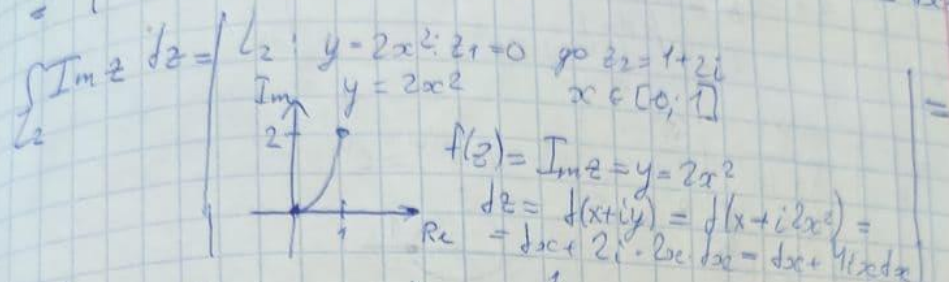 ∫ Im z dz = | L₂ : y = 2x² : z₁ = 0 до z₂ = 1+2i
L₂
y = 2x²   x ∈ [0; 1]
Im
2
1
Re
f(z) = Im z = y = 2x²
dz = d(x+iy) = d(x+i2x²) =
= dx + 2i · 2x · dx = dx + 4ixdx | =